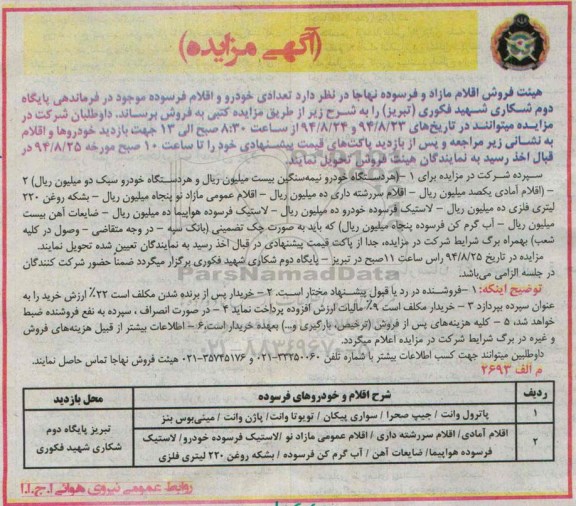 (آگهی مزایده)
هیئت فروش اقلام مازاد و فرسوده نهاجا در نظر دارد تعدادی خودرو و اقلام فرسوده موجود در فرماندهی پایگاه
دوم شکاری شهید فکوری (تبریز) را به شرح زیر از طریق مزایده کتبی به فروش برساند. داوطلبان شرکت در
مزایده میتوانند در تاریخ‌های ۹۴/۸/۲۳ و ۹۴/۸/۲۴ از ساعت ۸:۳۰ صبح الی ۱۳ جهت بازدید خودروها و اقلام
به نشانی زیر مراجعه و پس از بازدید پاکت‌های قیمت پیشنهادی خود را تا ساعت ۱۰ صبح مورخه ۹۴/۸/۲۵ در
قبال اخذ رسید به نمایندگان هیئت فروش تحویل نمایند.
سپرده شرکت در مزایده برای ۱- (هردستگاه خودرو نیمه‌سنگین بیست میلیون ریال و هردستگاه خودرو سبک دو میلیون ریال) ۲
- (اقلام آمادی یکصد میلیون ریال - اقلام سررشته داری ده میلیون ریال - اقلام عمومی مازاد نو پنجاه میلیون ریال - بشکه روغن ۲۲۰
لیتری فلزی ده میلیون ریال - لاستیک فرسوده خودرو ده میلیون ریال - لاستیک فرسوده هواپیما ده میلیون ریال - ضایعات آهن بیست
میلیون ریال - آب گرم کن فرسوده پنجاه میلیون ریال) که باید به صورت چک تضمینی (بانک سپه - در وجه متقاضی - وصول در کلیه
شعب) بهمراه برگ شرایط شرکت در مزایده، جدا از پاکت قیمت پیشنهادی در قبال اخذ رسید به نمایندگان تعیین شده تحویل نمایند.
مزایده در تاریخ ۹۴/۸/۲۵ راس ساعت ۱۱ صبح در تبریز - پایگاه دوم شکاری شهید فکوری برگزار میگردد ضمنا حضور شرکت کنندگان
در جلسه الزامی می‌باشد.
توضیح اینکه: ۱ -فروشنده در رد یا قبول پیشنهاد مختار است. ۲ - خریدار پس از برنده شدن مکلف است ۲۲٪ ارزش خرید را به
عنوان سپرده بپردازد ۳ - خریدار مکلف است ۹٪ مالیات ارزش افزوده پرداخت نماید ۴ - در صورت انصراف ، سپرده به نفع فروشنده ضبط
خواهد شد. ۵ - کلیه هزینه‌های پس از فروش (ترخیص، بارگیری و...) بعهده خریدار است.۶ - اطلاعات بیشتر از قبیل هزینه‌های فروش
و غیره در برگ شرایط شرکت در مزایده اعلام میگردد.
داوطلبین میتوانند جهت کسب اطلاعات بیشتر با شماره تلفن ۳۳۲۵۰۰۶۰-۰۲۱ و ۳۵۷۴۵۱۷۶-۰۲۱ هیئت فروش نهاجا تماس حاصل نمایند.
م الف ۲۶۹۳
ردیف شرح اقلام و خودروهای فرسوده محل بازدید
۱ پاترول وانت / جیپ صحرا / سواری پیکان / تویوتا وانت/ پاژن وانت / مینی‌بوس بنز
۲ اقلام آمادی/ اقلام سررشته داری / اقلام عمومی مازاد نو /لاستیک فرسوده خودرو / لاستیک
فرسوده هواپیما/ ضایعات آهن / آب گرم کن فرسوده / بشکه روغن ۲۲۰ لیتری فلزی
تبریز پایگاه دوم
شکاری شهید فکوری
روابط عمومی نیروی هوائی ا.ج.ا.ا
ParsNamadData
۰۲۱-۸۸۳۴۹۶۷۰